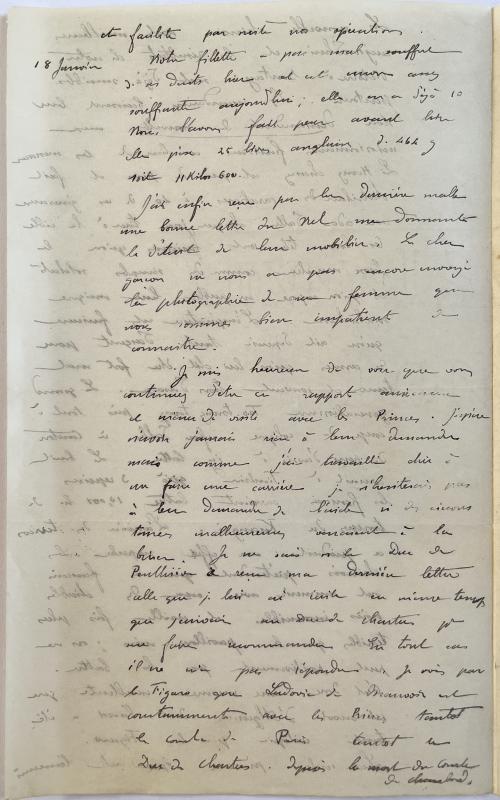 et facilite par suite nos opérations.
18 Janvier Notre fillette a pas mal souffert
de ses dents hier et est encore assez
souffrante aujourd'hui ; elle en a déjà 10
Nous l'avons fait peser avant hier
elle pèse 25 livres anglaises de 464 g
soit 11 Kilos 600.
J'ai enfin reçu par la dernière malle
une bonne lettre du Nel me donnant
le détail de leur mobilier. Le cher
garçon ne nous a pas encore envoyé
la photographie de sa femme que
nous sommes bien impatients de
connaitre.
Je suis heureux de voir que vous
continuez d'être en rapport
et même de visite avec les Princes. J'espère
n'avoir jamais rien à leur demander
mais comme j'ai travaillé dur à
me faire une carrière je n'hésiterais pas
à leur demander de l'aide si des circons
tances malheureuses venaient à la
briser. Je ne sais si le Duc de
Penthièvre a reçu ma dernière lettre
celle que je lui ai écrite en même temps
que j'écrivais au Duc de Chartres pr
me faire recommander. En tout cas
il ne m'a pas répondu. Je vois par
le Figaro que Ludovic de Beauvoir est
constamment avec les Princes tantôt
le comte de Paris tantôt le
Duc de Chartres. depuis la mort du Comte
de Chambord.